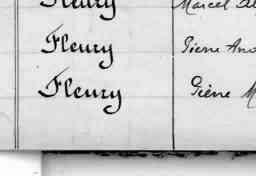 Fleury Marcel
Fleury Pierre
Fleury Pierre M